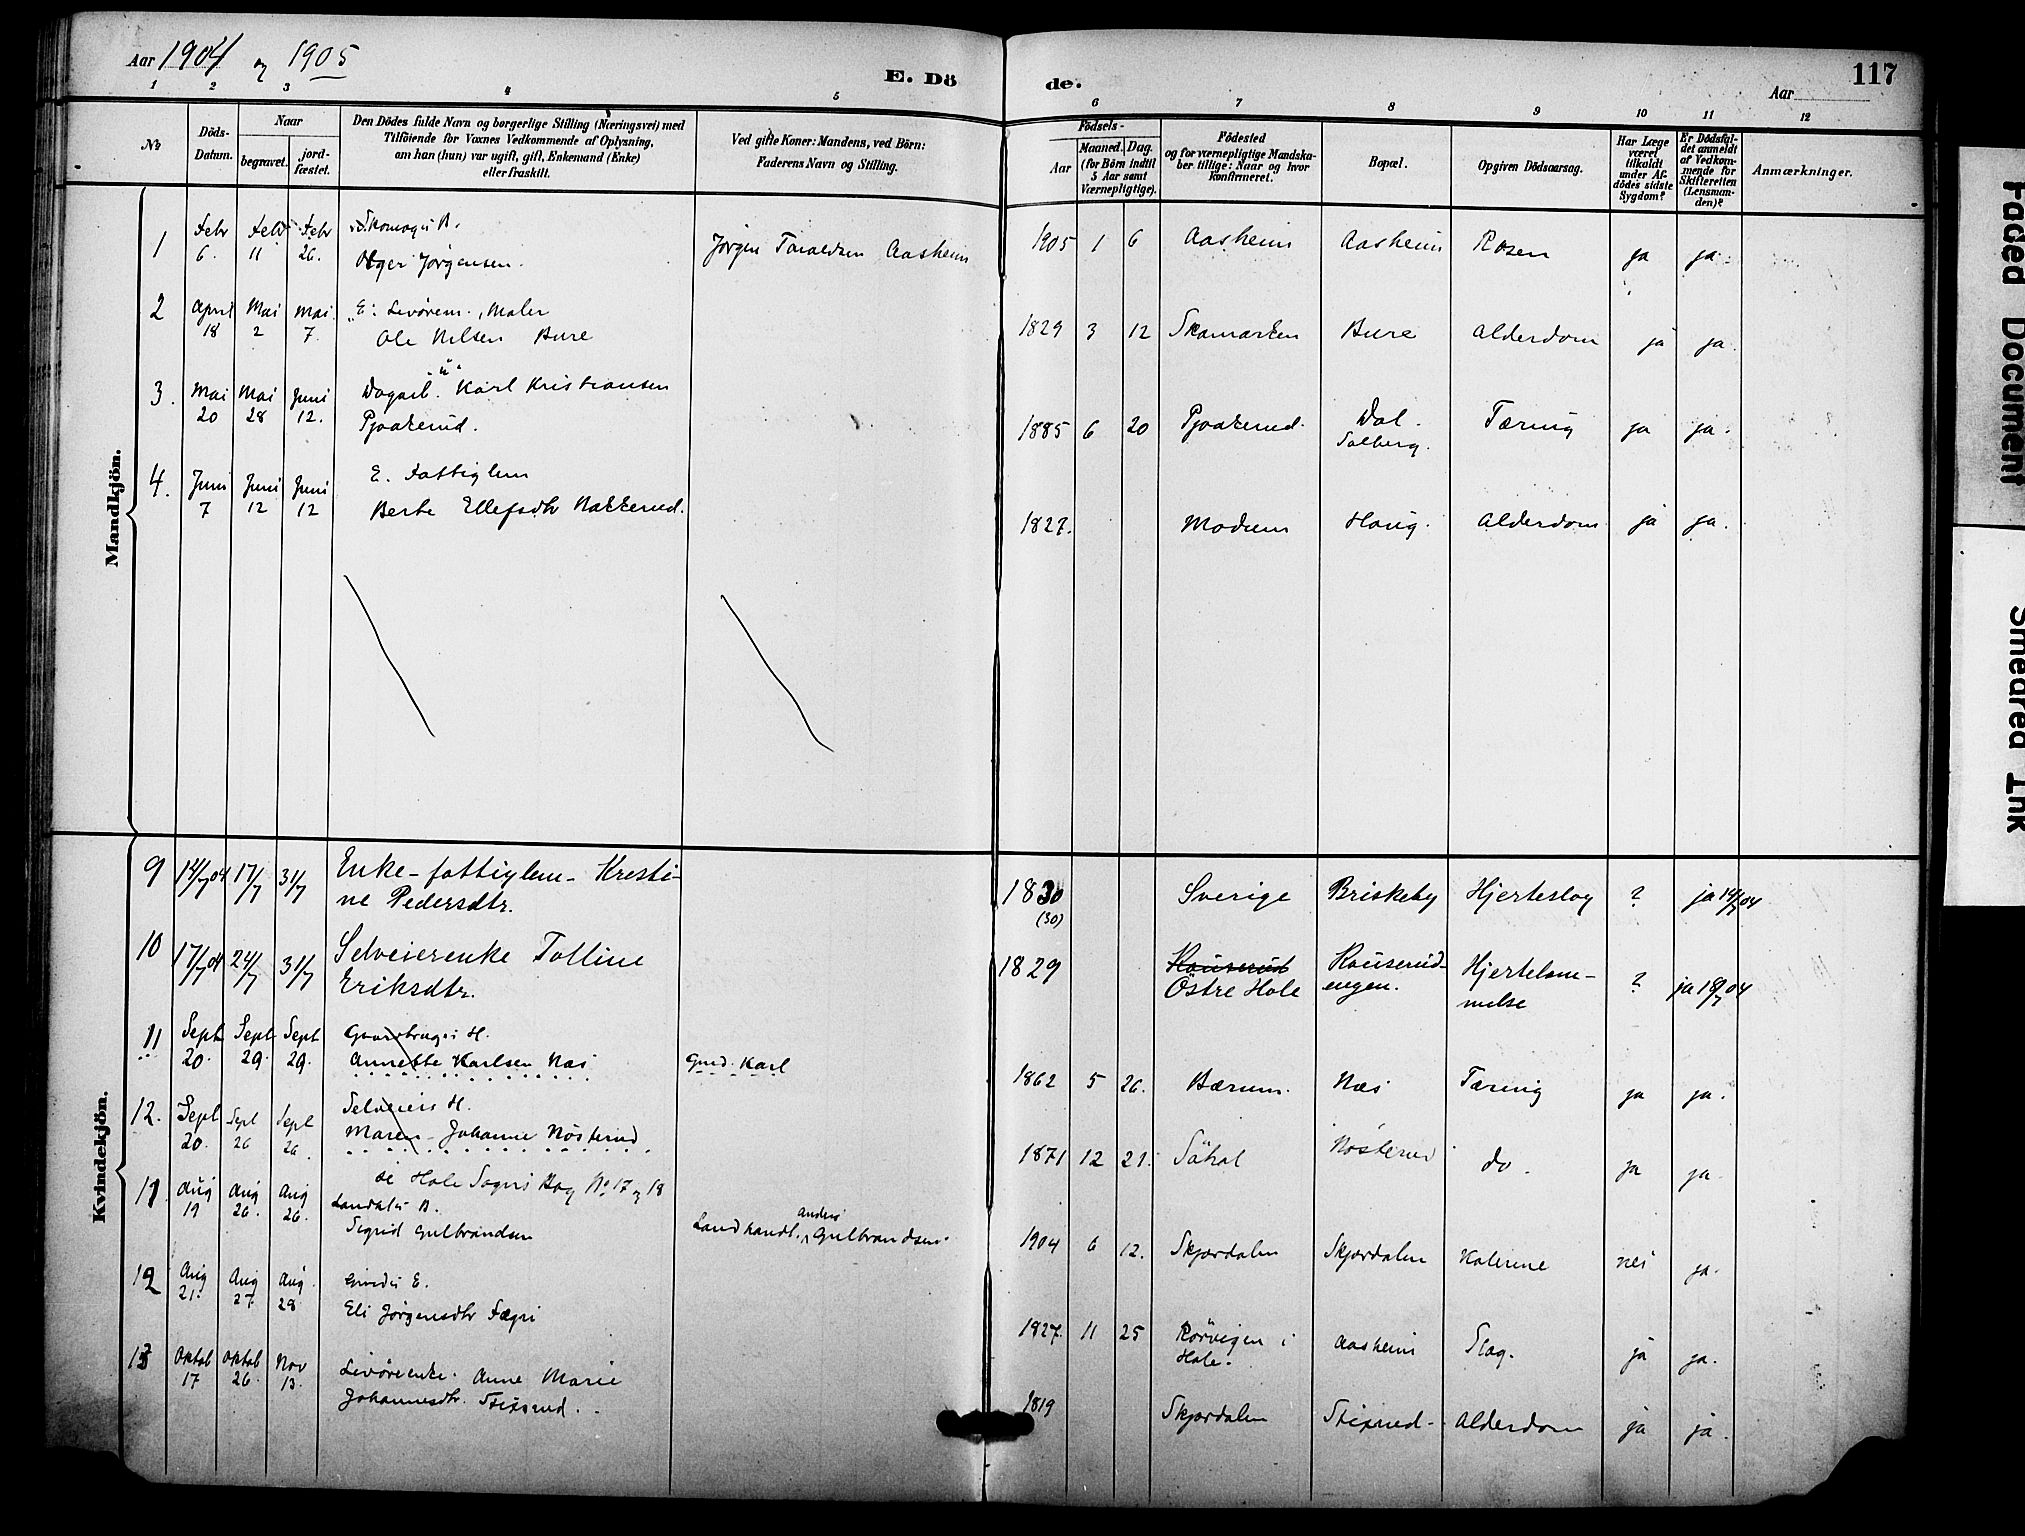 Aar 1904 og 1905
E. Dö de.
Aar
117
1 2 3 4 5 6 7 8 9 10 11 12
No
Döds-Datum.
Naar
begravet.
jord-fæstet.
Den Dödes fulde Navn og borgerlige Stilling (Næringsvei) med
Tilföiende for Voxnes Vedkommende af Oplysning,
om han (hun) var ugift, gift, Enkemand (Enke)
eller fraskilt.
Ved gifte Koner: Mandens, ved Börn:
Faderens Navn og Stilling.
Födsels-
Aar
Maaned. Dag.
(for Börn indtil
5 Aar samt
Værnepligtige).
Födested
og for værnepligtige Mandska-
ber tillige: Naar og hvor
konfirmeret.
Bopæl.
Opgiven Dödsaarsag.
Har Læge
været
tilkaldt
under Af-
dödes sidste
Sygdom?
Er Dödsfal-
det anmeldt
af Vedkom-
mende for
Skifteretten
(Lensman-
den)?
Anmærkninger.
Mandkjön.
1 Febr 6. Febr 11 Febr 26. Skomager B.
Jørgensen. Jørgen Taraldsen Aasheim 1905 1 6 Aasheim Aasheim Rosen ja ja.
2 April 18 Mai 2 Mai 7. E. Levørem., Maler
Ole Nilsen Bure 1829 3 12 Skamarken Bure Alderdom ja ja.
3. Mai 20 Mai 28 Juni 12. Dagarb. u Karl Kristiansen
Pjaakerud. 1885 6 20 Pjaakerud. Dal. Solberg. Tæring ja ja.
4. Juni 7 Juni 12 Juni 12 E. Fattiglem
Berte Ellefsdtr Nakkerud. 1827. Modum Haug. Alderdom ja ja.
Kvindekjön.
9 14/7 04 17/7 31/7 Enke-fattiglem- Kresti-
ne Pedersdtr. 1830 (30) Sverige Briskeby Hjerteslag ? ja 14/7 04
10 17/7 04 24/7 31/7 Selveierenke Tolline
Eriksdtr. 1829 Rauserud Östre Hole Rauserud-engen. Hjertelam-melse ? ja 19/7 04
11 Sept 20. Sept 29. Sept 29. Gaardbruger H.
Annette Karlsen Næs Gmd. Karl 1862 5 26. Bærum. Næs Tæring ja ja.
12. Sept 20. Sept 26 Sept 26. Selveiers H.
Maren Johanne Nøsterud 1871 12 21. Nøsterud do. ja ja.
se Hole Sogns Bog No 17 og 18
11. Aug 19 Aug 26. Aug 26. Landh. B.
Sigrid Gulbrandsen Landhandl. Anders Gulbrandsen. 1904 6 12. Skjærdalen Skjærdalen Kolerine nei ja.
12 Aug 21. Aug 27. Aug 28 Gmds E.
Eli Jørgensdtr 1827. 11 25 Rørvigen i Hole. Aasheim Slag. ja ja.
13 Oktob 17 Oktob 26. Nov 13. Levøreenke. Anne Marie
Johannesdtr. Stixrud. 1819 Skjærdalen Stixrud Alderdom ja ja.
Faded Document
Smeared Ink